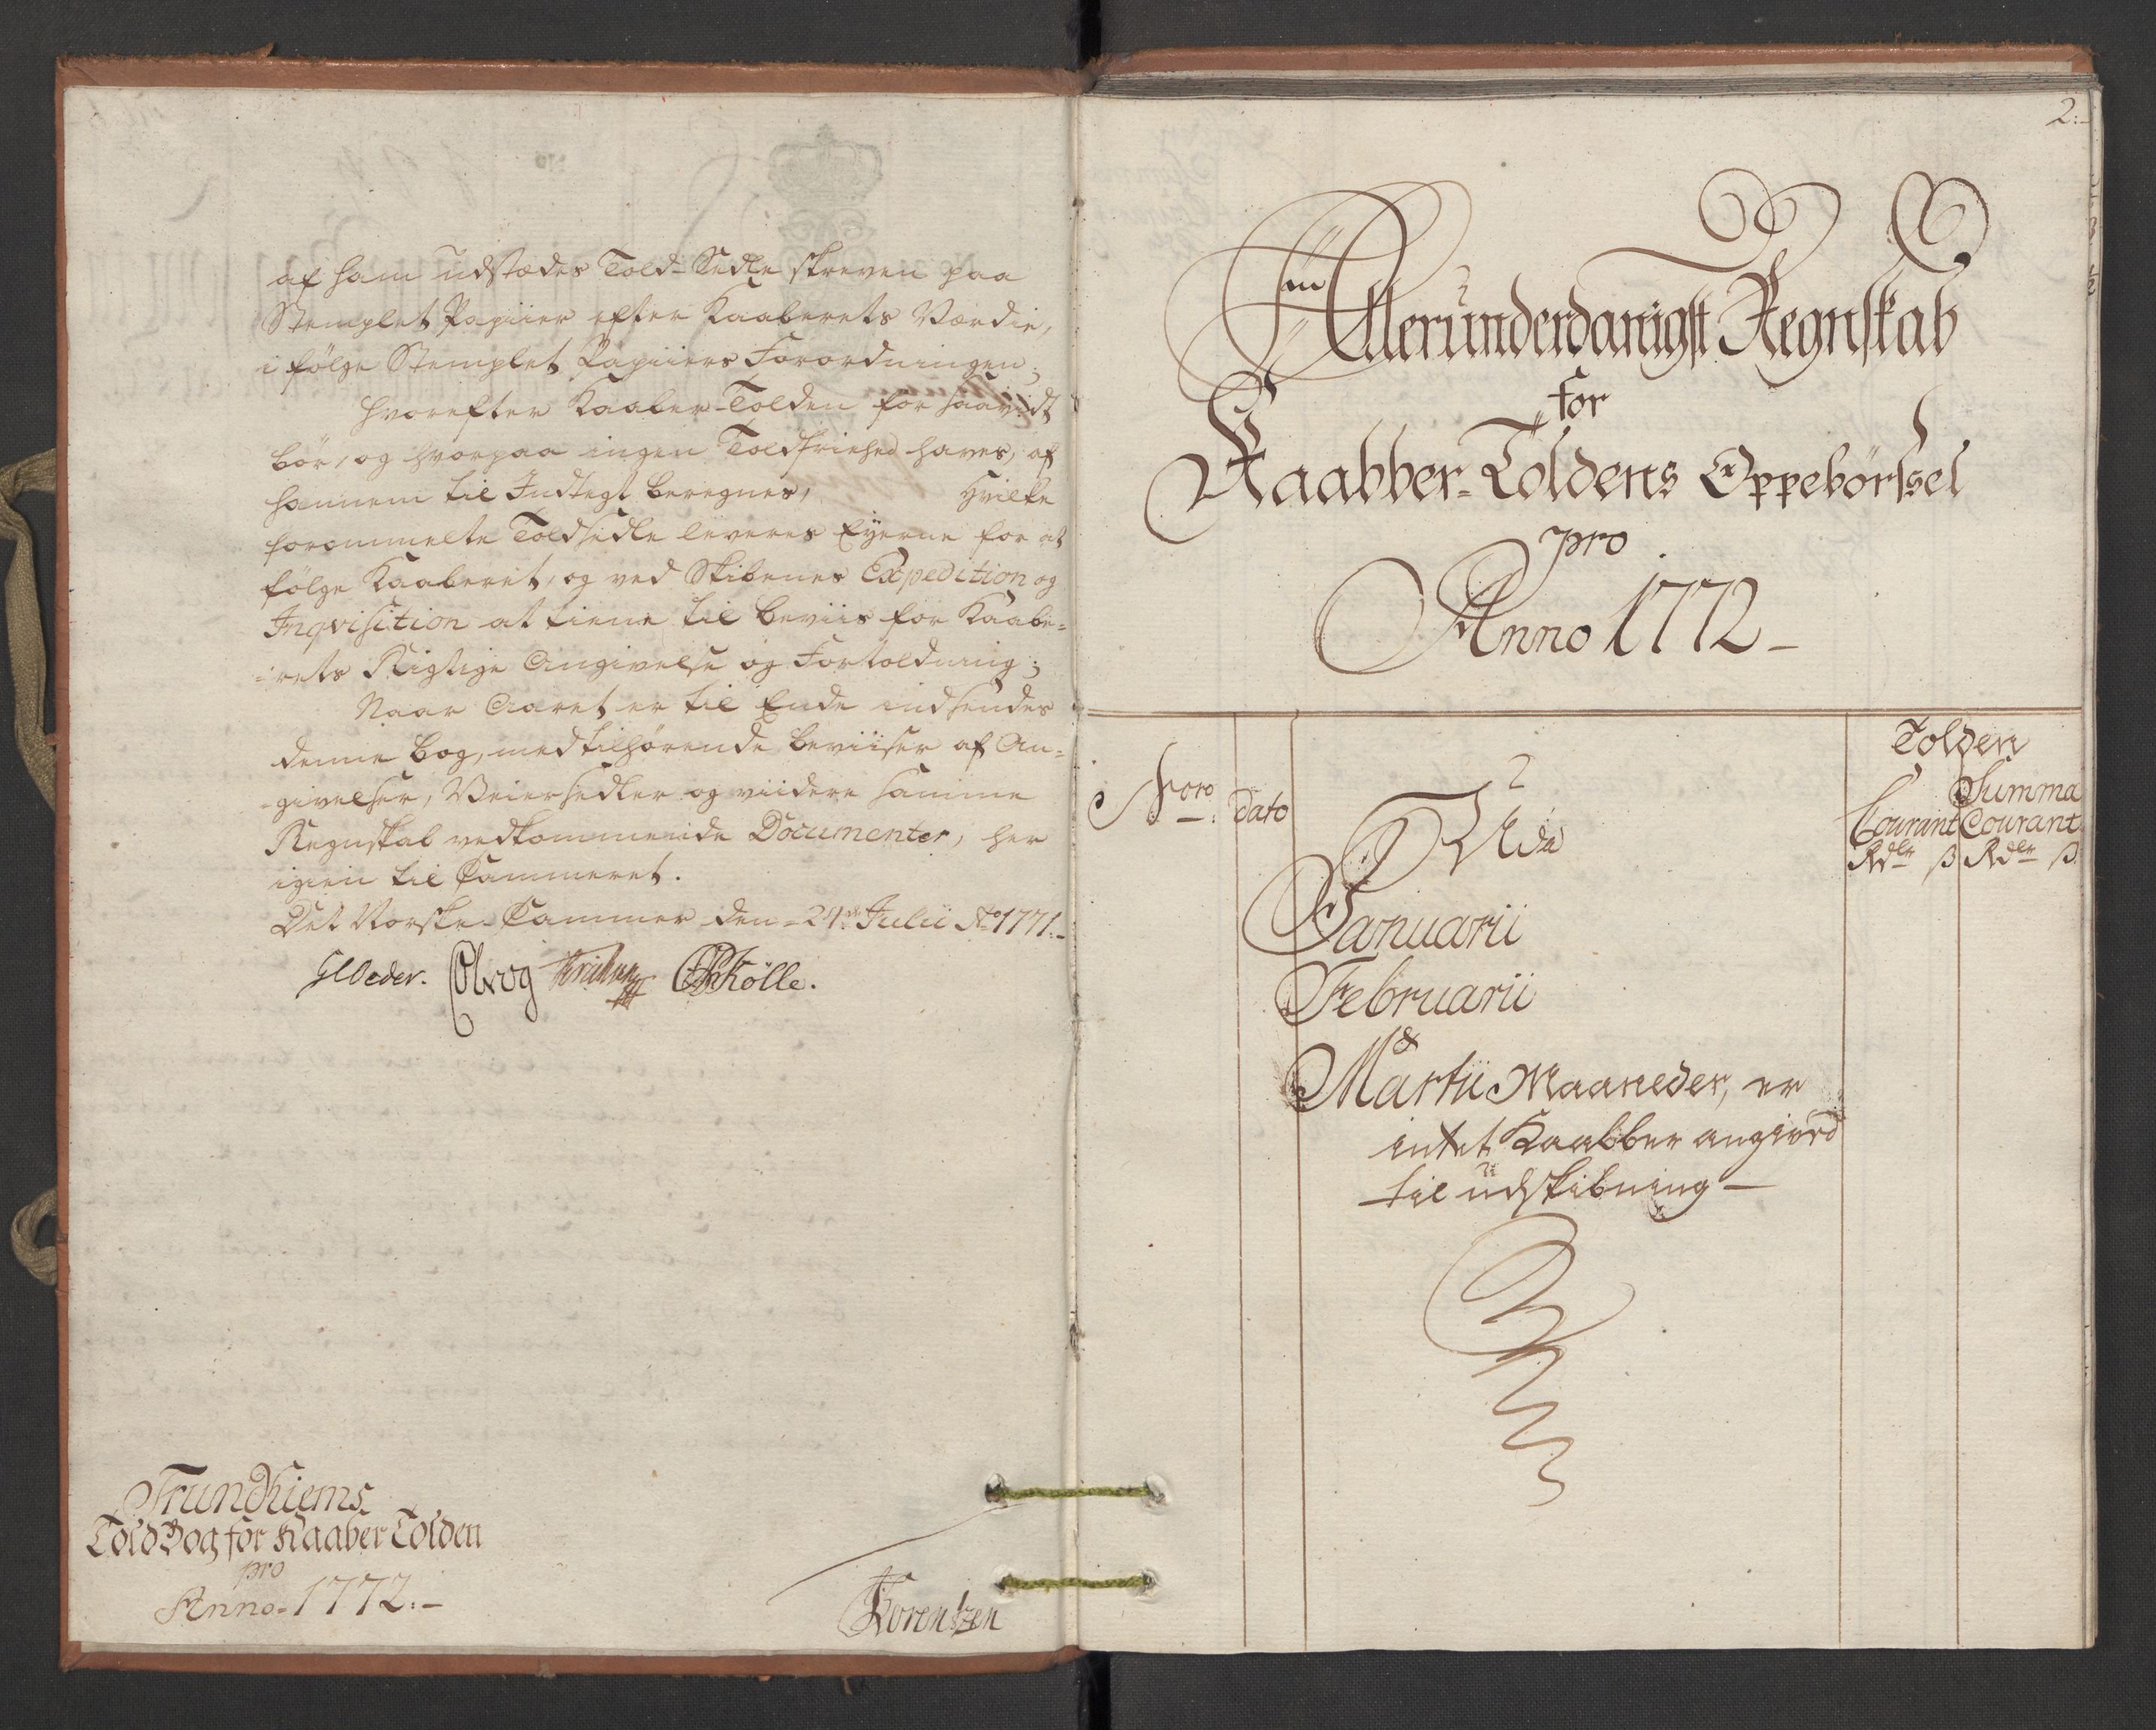 af ham udstædes Told-Sedle skreven paa
Stemplet Papiir efter Kaaberets Værdie,
i følge Stemplet Papiirs Forordningen;
Hvorefter Kaaber-Tolden for saavidt
bör, og hvorpaa ingen Toldfriehed haves, af
hannem til Indtegt beregnes, Hvilke
forommelte Toldsedle leveres Eyerne for at
følge Kaaberet, og ved Skibenes Expedition og
Inqvisition at tiene til beviis for Kaabe=
=rets Rigtige Angivelse og Fortoldning;
Naar Aaret er til Ende indsendes
denne bog, med tilhørende beviiser af An=
=givelser, Veiersedler og viidere samme
Regnskab vedkommende Documenter, her
igien til Cammeret.
Det Norske Cammer den 24de Julii Ao 1771.
GCOeder.
Trundhiems
Told Bog for Kaaber Tolden
pro
Anno 1772:-
Lorentzen
2:
Allerunderdanigst Regnskab
for
Kaabber-Toldens Oppebörssel
pro
Anno 1772-
Tolden
Dato
Udi
Courant
Summa
Courant
Rdlr ß Rdlr ß
Januarii
Februarii
&
Martii Maaneder, er
intet Kaabber angived
til udskibning-